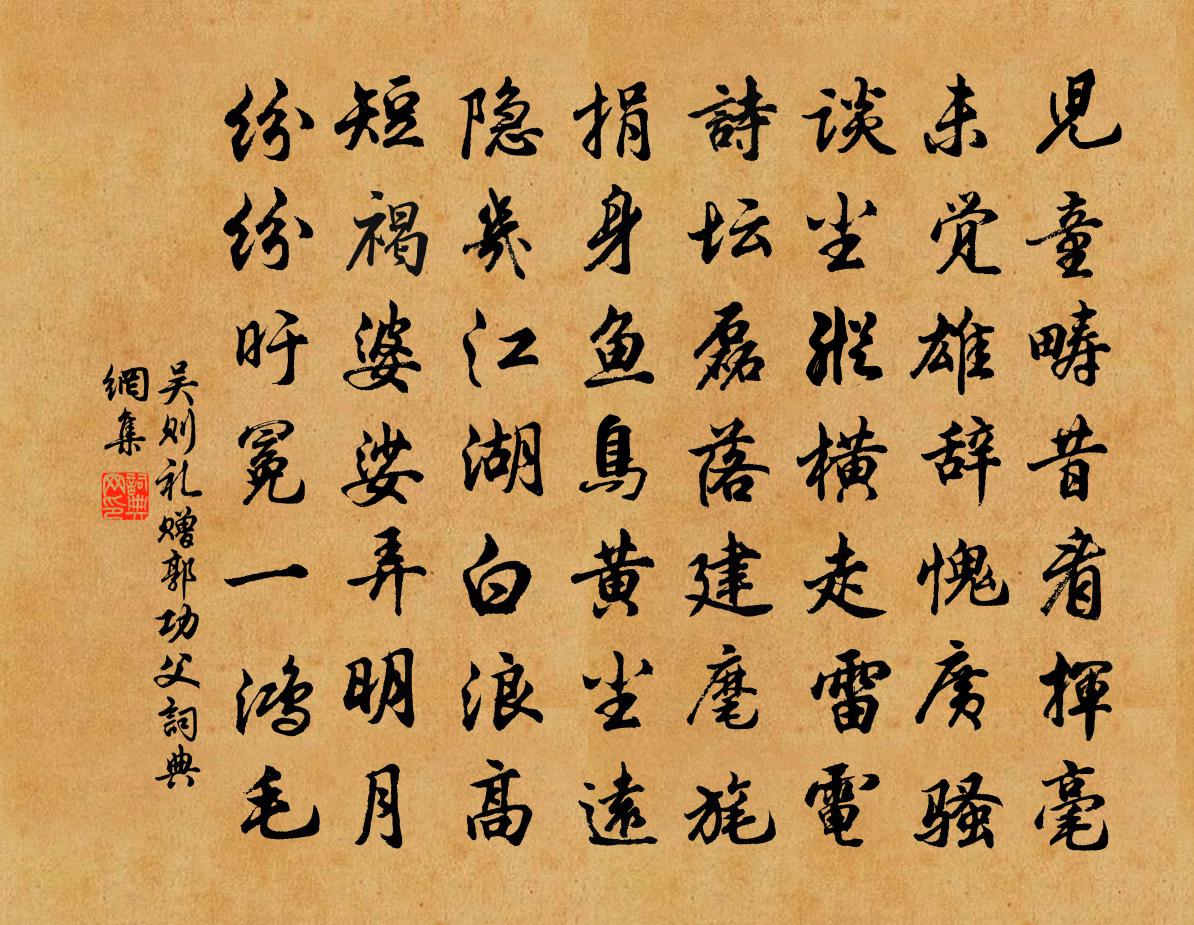 児童畴昔看揮毫
未觉雄辞愧廣骚
谈尘縱横走雷電
詩坛磊落建麾旄
捐身鱼鳥黄尘遠
隐幾江湖白浪高
短褐婆娑弄明月
纷纷旰冕一鸿毛
吴则礼赠郭功父詞典
網集
詞典
网印